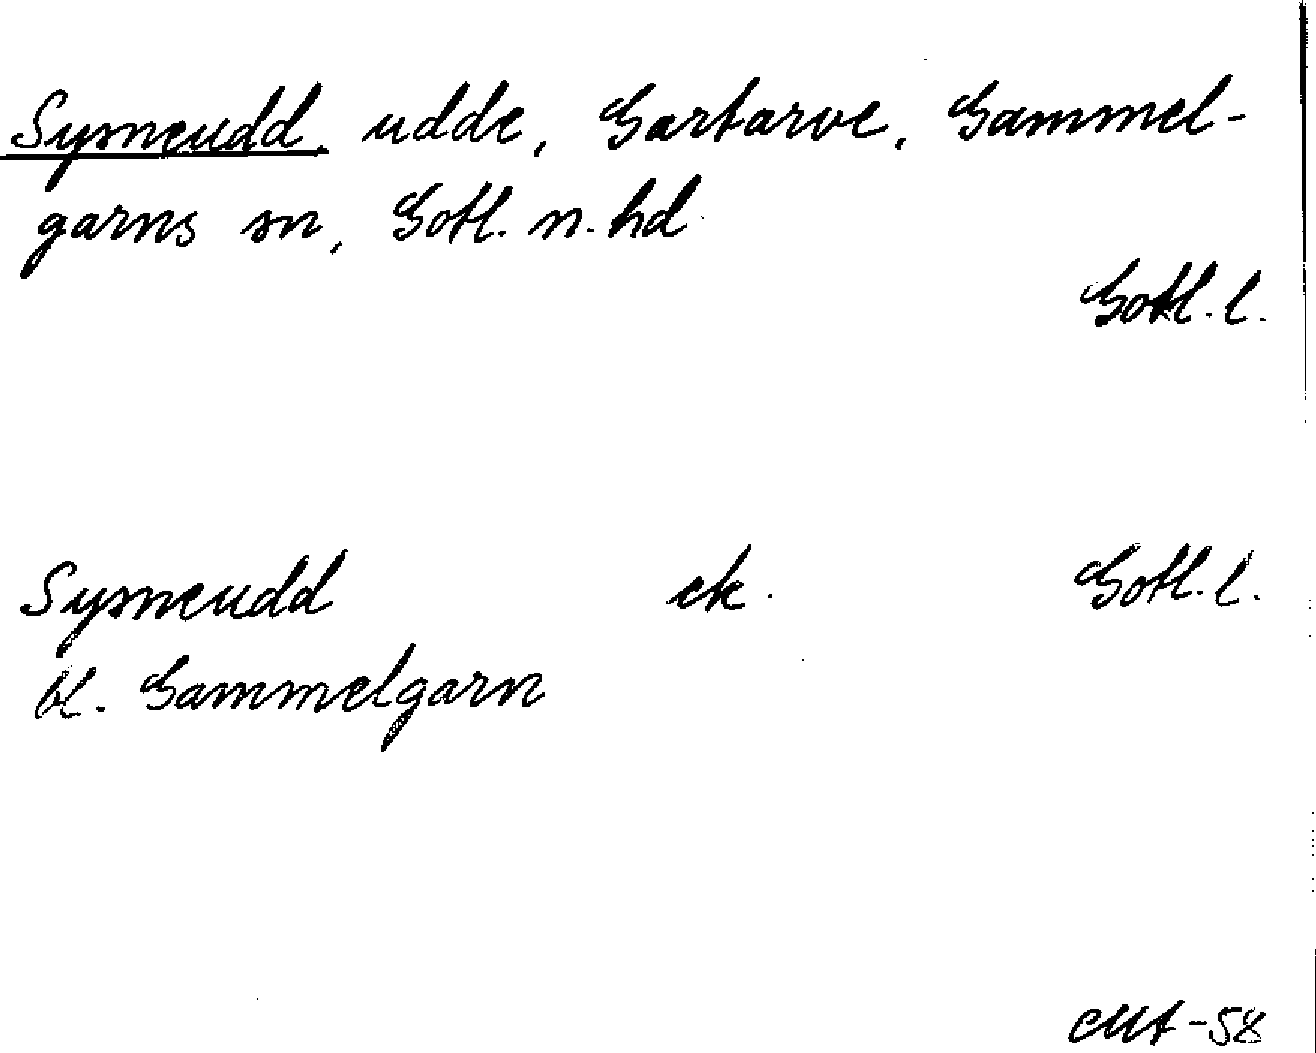 Sysneudd, udde, Gartarve, Gammel-
garns sn, Gotl. n. hd
Gotl. l.
Sysneudd ek. Gotl. l.
bl. Gammelgarn